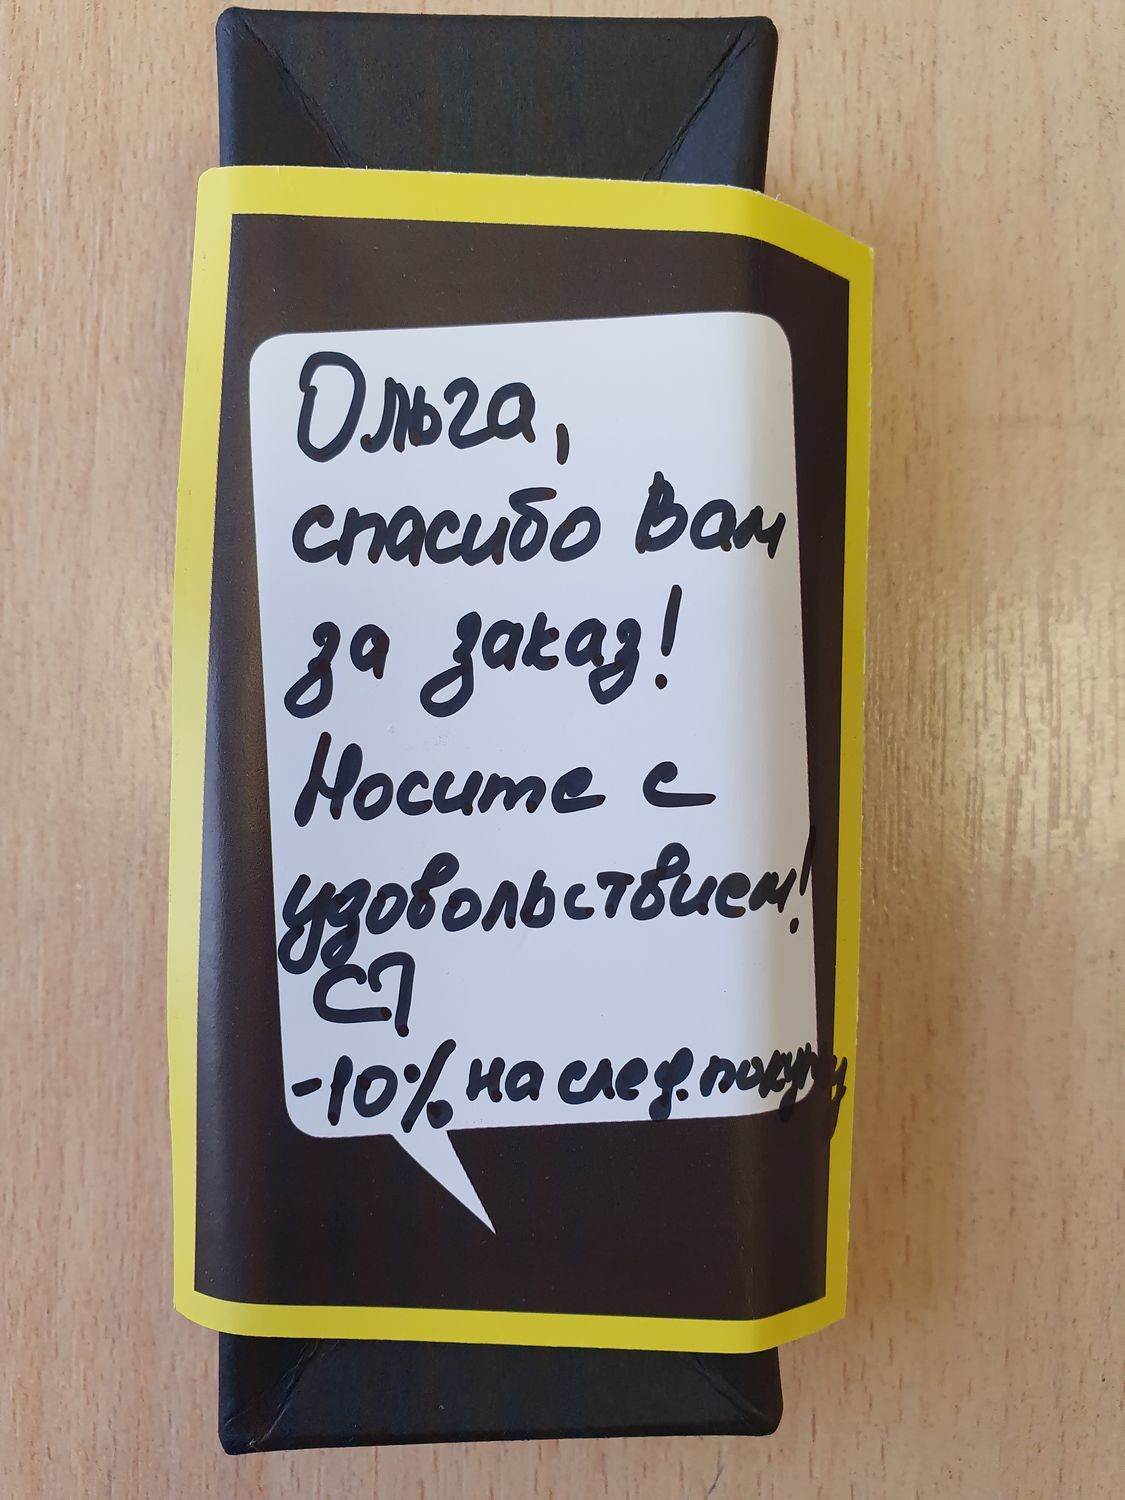 Ольга,
спасибо Вам
за заказ!
Носите с
удовольствием!
СП
-10% на след. покупку